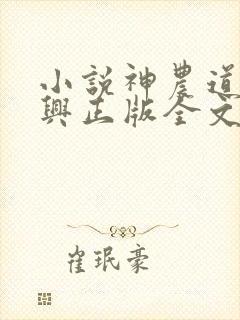 小說神農道
興正版全文
崔珉豪